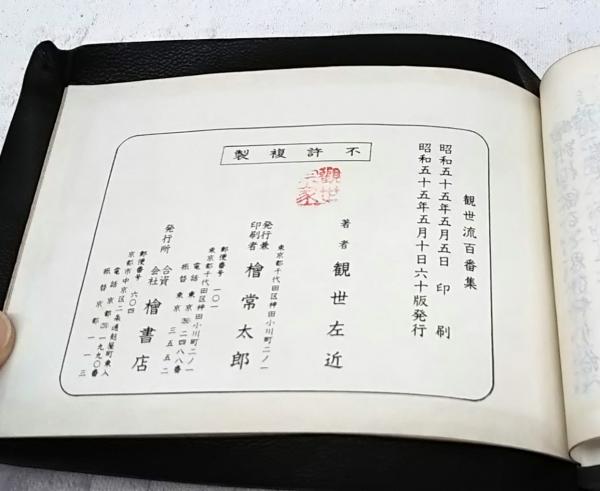 観世流百番集
昭和五十五年五月五日 印刷
昭和五十五年五月十日六十版発行
不許複製
観世
宗家
著者 観世左近
東京都千代田区神田小川町二ノ一
発行兼
印刷者 檜常太郎
郵便番号 一〇一
東京都千代田区神田小川町二ノ一
電話 東京 二四八八番
振替 東京 三五五二
発行所 合資
会社 檜書店
郵便番号 六〇四
京都市中京区二条通麩屋町東入
電話 京都 一九九〇番
振替 京都 一一三